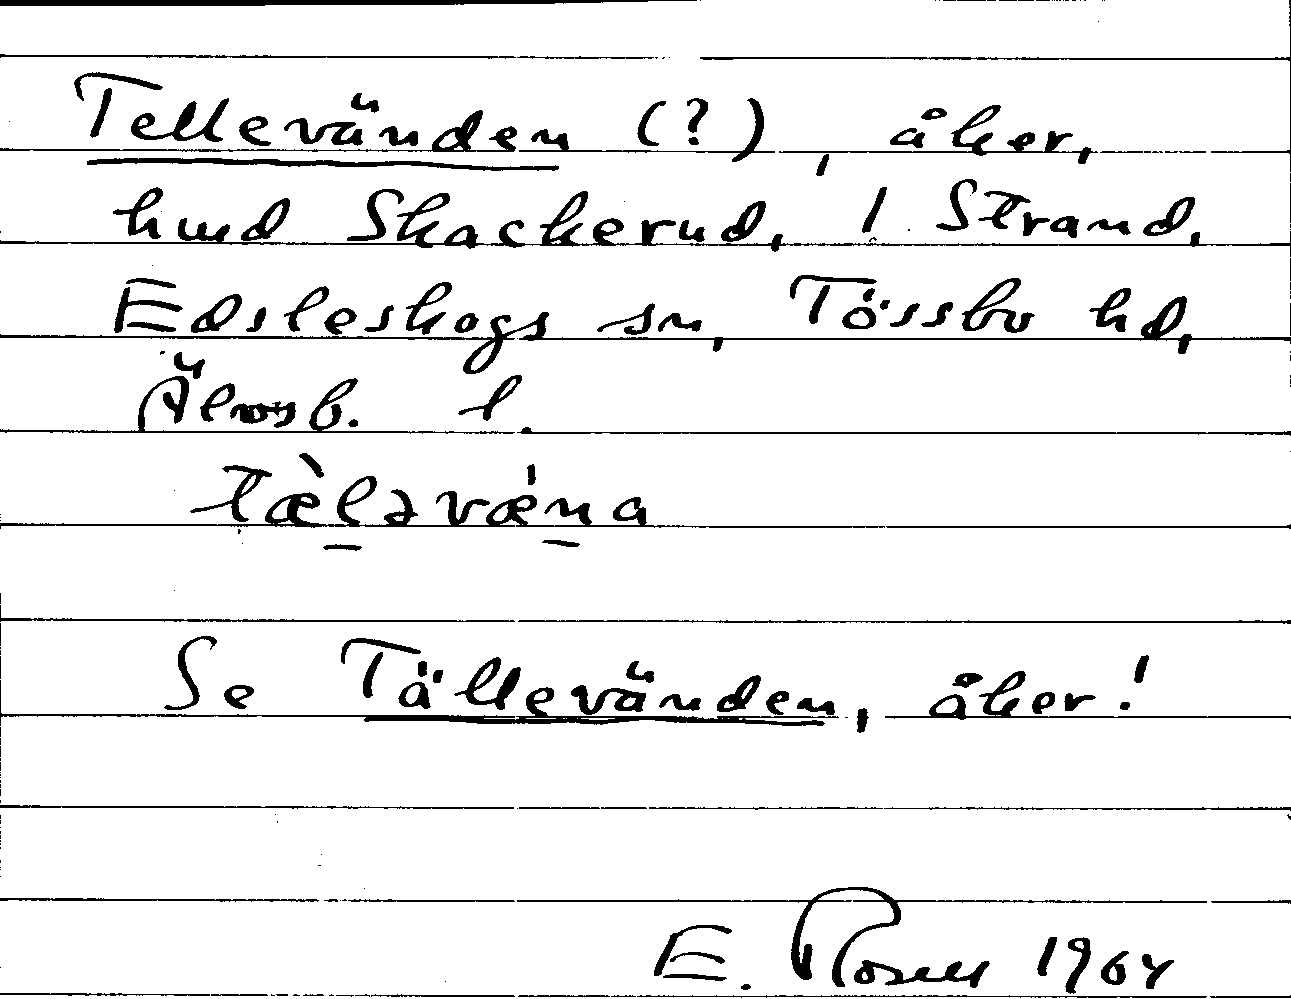 Tellevänden (?), åker,
hmd Skackerud, 1 Strand,
Edsleskogs sn, Tössbo hd,
Älvsb. l.
tæ̀lǝvǽna
Se Tällevänden, åker!
E. Rosell 1964